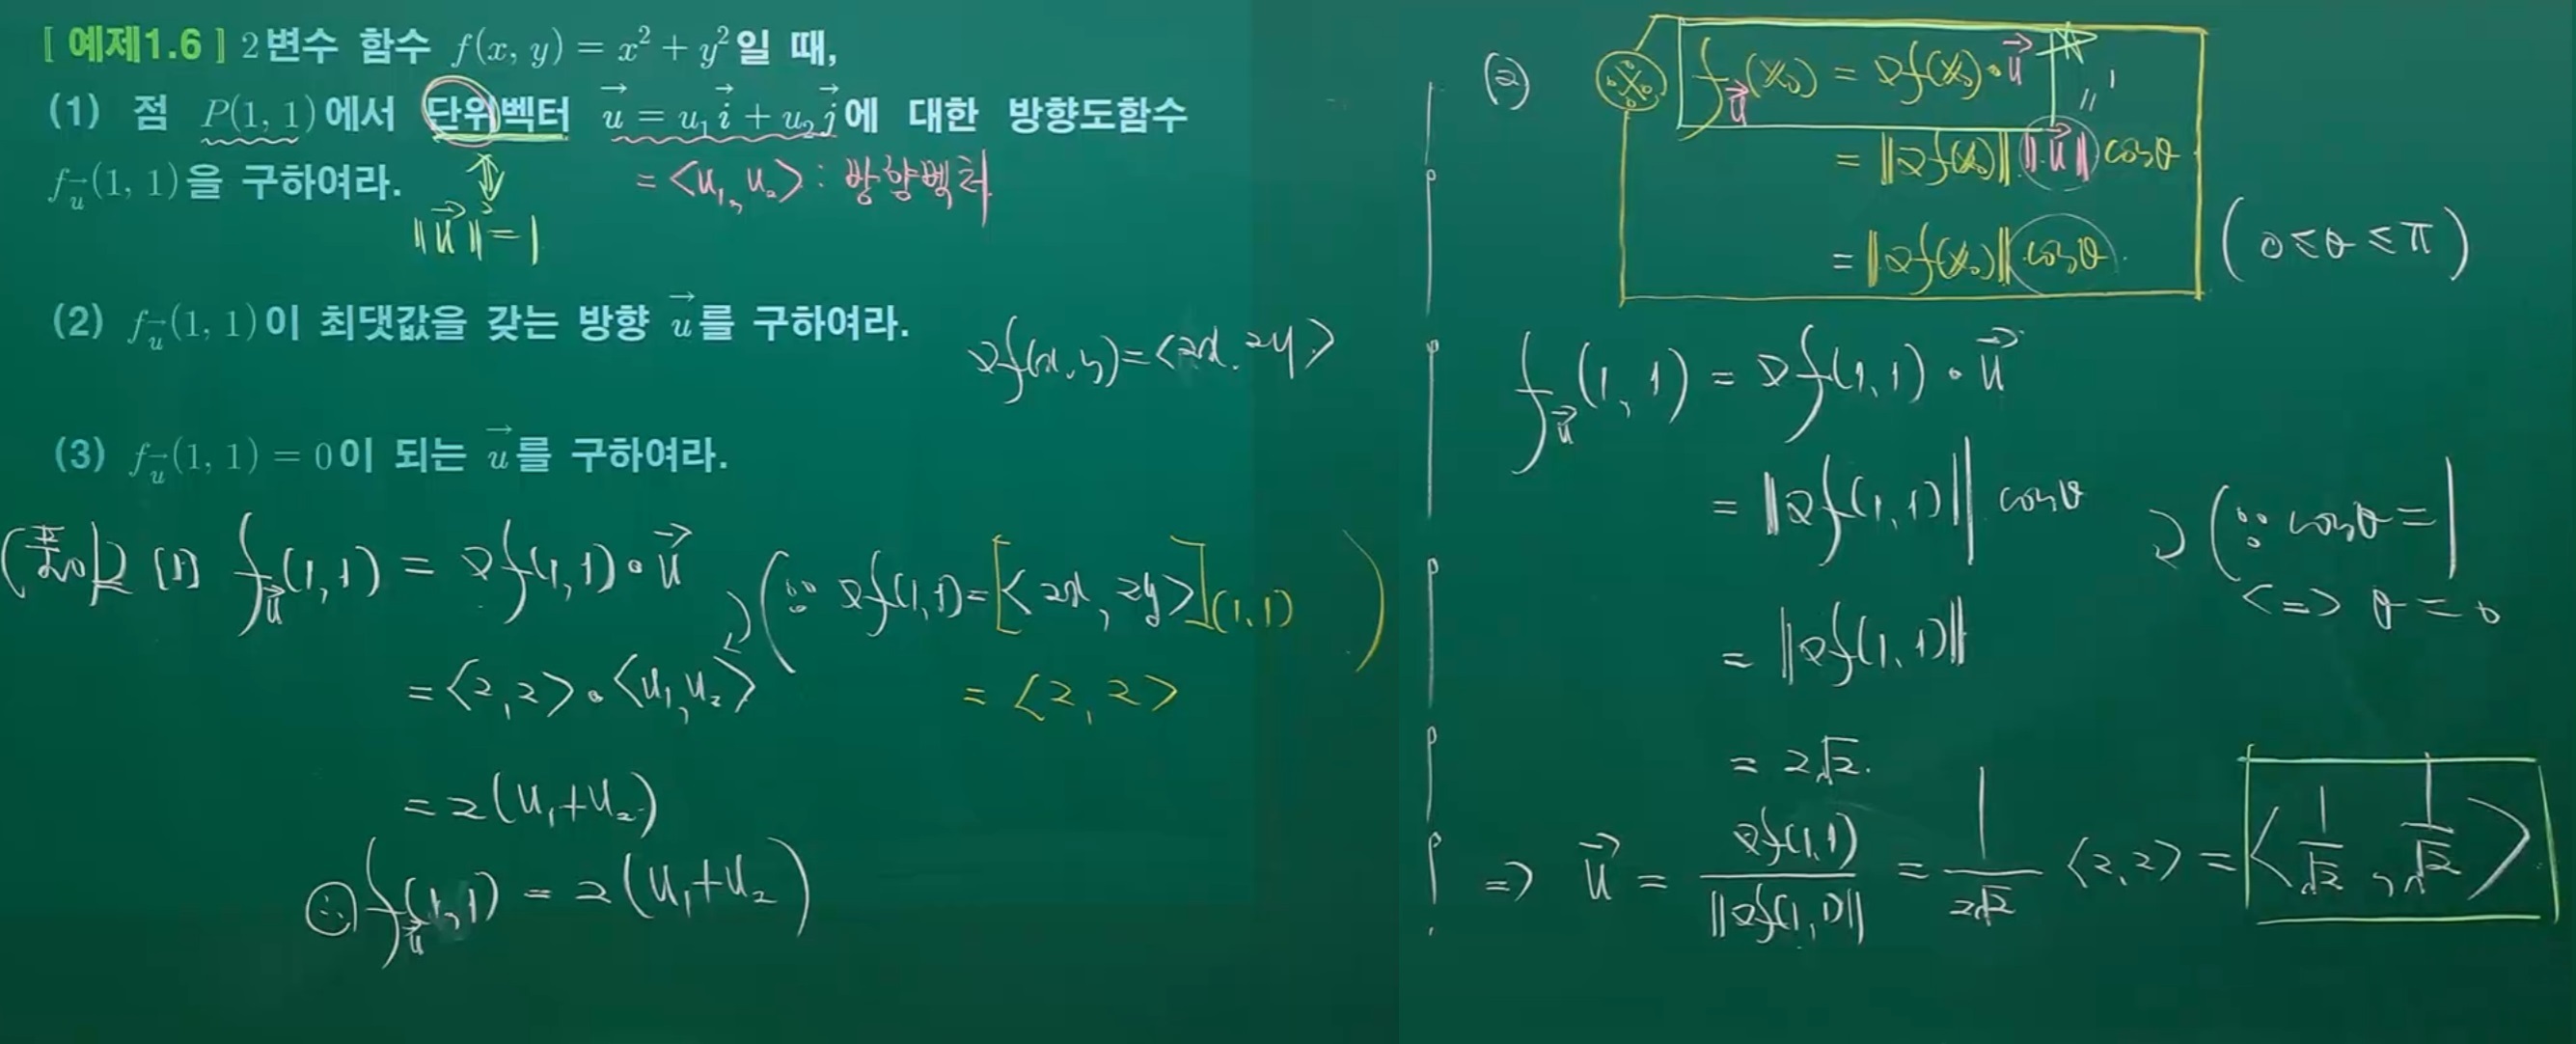 [ 예제1.6 ] 2변수 함수 f(x, y) = x² + y²일 때,
(1) 점 P(1, 1)에서 단위벡터 u⃗ = u₁i⃗ + u₂j⃗에 대한 방향도함수
f_u⃗(1, 1)을 구하여라.
= <u₁, u₂> : 방향벡터
‖u⃗‖ = 1
(2) f_u⃗(1, 1)이 최댓값을 갖는 방향 u⃗를 구하여라.
∇f(x, y) = <2x, 2y>
(3) f_u⃗(1, 1) = 0이 되는 u⃗를 구하여라.
(풀이) (1) f_u⃗(1, 1) = ∇f(1, 1)·u⃗
(∵ ∇f(1, 1) = [<2x, 2y>](1, 1)
= <2, 2> )
= <2, 2>·<u₁, u₂>
= 2(u₁+u₂)
∴ f_u⃗(1, 1) = 2(u₁+u₂)
(2) ※ f_u⃗(X₀) = ∇f(X₀)·u⃗
= ‖∇f(X₀)‖ ‖u⃗‖ cosθ
= ‖∇f(X₀)‖ cosθ
(0 ≤ θ ≤ π)
f_u⃗(1, 1) = ∇f(1, 1)·u⃗
= ‖∇f(1, 1)‖ cosθ
(∵ cosθ = 1
<=> θ = 0
= ‖∇f(1, 1)‖
= 2√2.
=> u⃗ = ∇f(1, 1)/‖∇f(1, 1)‖ = 1/2√2 <2, 2> = <1/√2, 1/√2>